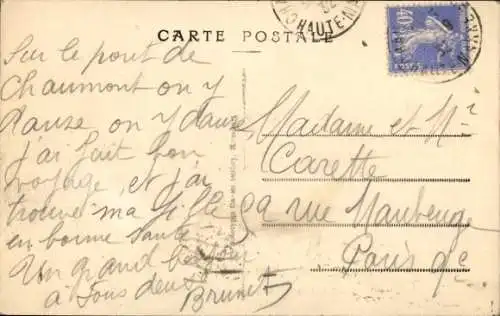 CARTE POSTALE
HAUTE-M
40c
Sur le pont de
Chaumont on y
danze on y danze
j'ai fait bon
voyage, et j'ai
trouvé ma fille
en bonne santé
Un grand bonjour
à Tous deux
Brunet
Madame et Mr
Carette
9a rue Maubeuge
Paris 9e